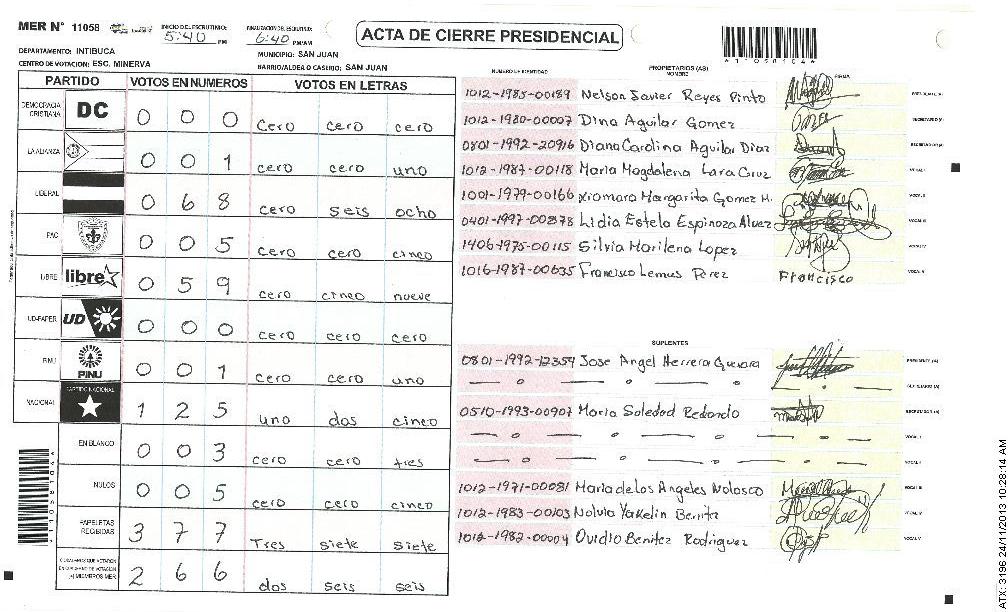 MER N° 11058
INICIO DEL ESCRUTINIO:
5:40 PM
FINALIZACION DEL ESCRUTINIO:
6:40 PM/AM
ACTA DE CIERRE PRESIDENCIAL
*11058104*
DEPARTAMENTO: INTIBUCA
MUNICIPIO: SAN JUAN
CENTRO DE VOTACION: ESC. MINERVA
BARRIO/ALDEA O CASERIO: SAN JUAN
PARTIDO VOTOS EN NUMEROS VOTOS EN LETRAS
DEMOCRACIA CRISTIANA DC 0 0 0 cero cero cero
LA ALIANZA 0 0 1 cero cero uno
LIBERAL 0 6 8 cero seis ocho
PAC 0 0 5 cero cero cinco
LIBRE libre 0 5 9 cero cinco nueve
UD-FAPER UD 0 0 0 cero cero cero
PINU PINU 0 0 1 cero cero uno
NACIONAL PARTIDO NACIONAL 1 2 5 uno dos cinco
EN BLANCO 0 0 3 cero cero tres
NULOS 0 0 5 cero cero cinco
PAPELETAS RECIBIDAS 3 7 7 Tres siete siete
(+) MIEMBROS MER 2 6 6 dos seis seis
*11058104*
NUMERO DE IDENTIDAD PROPIETARIOS (AS) NOMBRE FIRMA
1012-1985-00189 Nelson Javier Reyes Pinto PRESIDENTE (A)
1012-1980-00007 Dina Aguilar Gomez SECRETARIO (A)
0801-1992-20916 Diana Carolina Aguilar Diaz
1012-1987-00118 Maria Magdalena Lara Cruz VOCAL I
1001-1979-00166 Xiomara Margarita Gomez M. VOCAL II
0401-1997-00878 Lidia Estela Espinoza Alvez VOCAL III
1406-1975-00115 Silvia Marilena Lopez VOCAL IV
1016-1987-00635 Francisco Lemus Perez Francisco VOCAL V
SUPLENTES
0801-1992-12354 Jose Angel Herrera Guevara PRESIDENTE (A)
SECRETARIO (A)
0510-1993-00907 Maria Soledad Redondo
VOCAL I
VOCAL II
1012-1971-00081 Maria de los Angeles Nolasco VOCAL III
1012-1983-00103 Nolvia Yakelin Benita VOCAL IV
1012-1982-00004 Ovidio Benitez Rodriguez VOCAL V
ATX: 3196 24/11/2013 10:28:14 AM